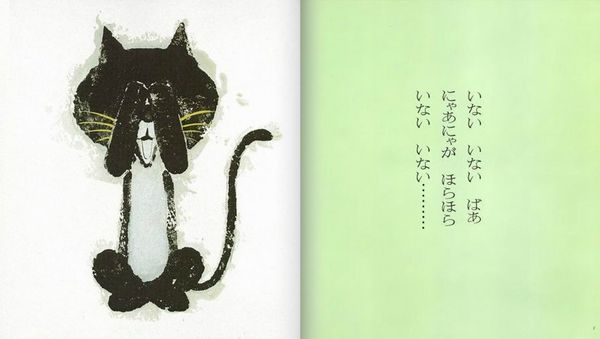 いない　いない　ばあ
にゃあにゃが　ほらほら
いない　いない…………